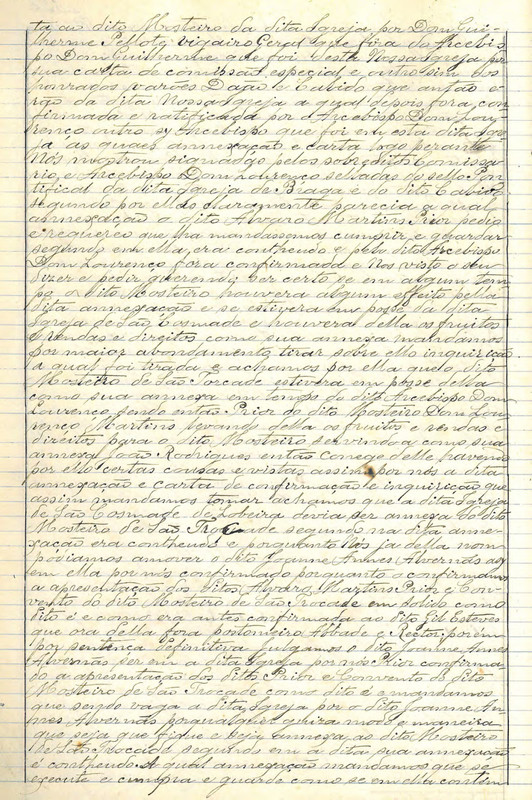 ta ao dito Mosteiro da dita Igreja por Dom Gui-
lherme Pellote vigairo Geral que fora do Arcebis-
po Dom Guilherme que foi desta Nossa Igreja por
sua carta de comissão especial e outro sim dos
honrados varões Daião e Cabido que antão e
rão da dita Nossa Igreja a qual depois fora con
firmada e ratificada por o Arcebispo Dom Lou-
renço outro sy Arcebispo que foi em esta dita Igre
ja as quaes annexação e carta logo perante
Nós mostrou signado pelos sobreditos Comissa-
rio, e Arcebispo Dom Lourenço selladas do sello Pon-
tifical da dita Igreja de Braga e do dito Cabido
segundo por ellas claramente parecia a qual
annexação o dito Alvaro Martins Prior pedio
e requereo que lha mandassemos cumprir e guardar
segundo em ella era contheudo e pelo dito Arcebispo
Dom Lourenço fora confirmada e Nós visto o seu
dizer e pedir querendo ser certo se em algum tem
po o dito Mosteiro houvera algum effeito pella
dita annexação e se estivera em posse da dita
Igreja de São Cosmade e houvera della os fruitos
e rendas e direitos como sua annexa mandamos
por maior abondamento tirar sobre ello inquirição
a qual foi tirada e achamos por ella que o dito
Mosteiro de São Torcade estivera em posse della
como sua annexa em tempo do dito Arcebispo Dom
Lourenço sendo então Prior do dito Mosteiro Dom Lou-
renço Martins levando della os fruitos e rendas e
direitos para o dito Mosteiro servindo a como sua
annexa João Rodrigues então Conego delle havendo
por ello certas cousas e vistas assim por nós a dita
annexação e carta de confirmação e inquirição que
assim mandamos tomar achamos que a dita Igreja
de São Cosmade de Lobeira devia ser annexa do dito
Mosteiro de São Trocade segundo na dita anne-
xação era contheudo e porquanto Nós ja della nom
podiamos amover o dito Joanne Annes Alvernás
em ella por nós confirmado porquanto o confirmamos
a apresentação dos ditos Alvaro Martins Prior e Con-
vento do dito Mosteiro de São Trocade em sólido como
dito é e como era antes confirmada ao dito Gil Esteves
que ora della fora postomeiro Abbade e Rector porém
por sentença definitiva julgamos o dito Joanne Annes
Alvernás ser em a dita Igreja por nós Prior confirma-
do a apresentação dos ditos Prior e Convento do dito
Mosteiro de São Trocade como dito é e mandamos
que sendo vaga a dita Igreja por o dito Joanne An-
nes Alvernás por qualquer guira modo e maneira
que seja que fique e seja annexa ao dito Mosteiro
de São Trocade segundo em a dita sua annexação
é contheudo. A qual annexação mandamos que se
execute e cumpra e guarde como se em ella contem